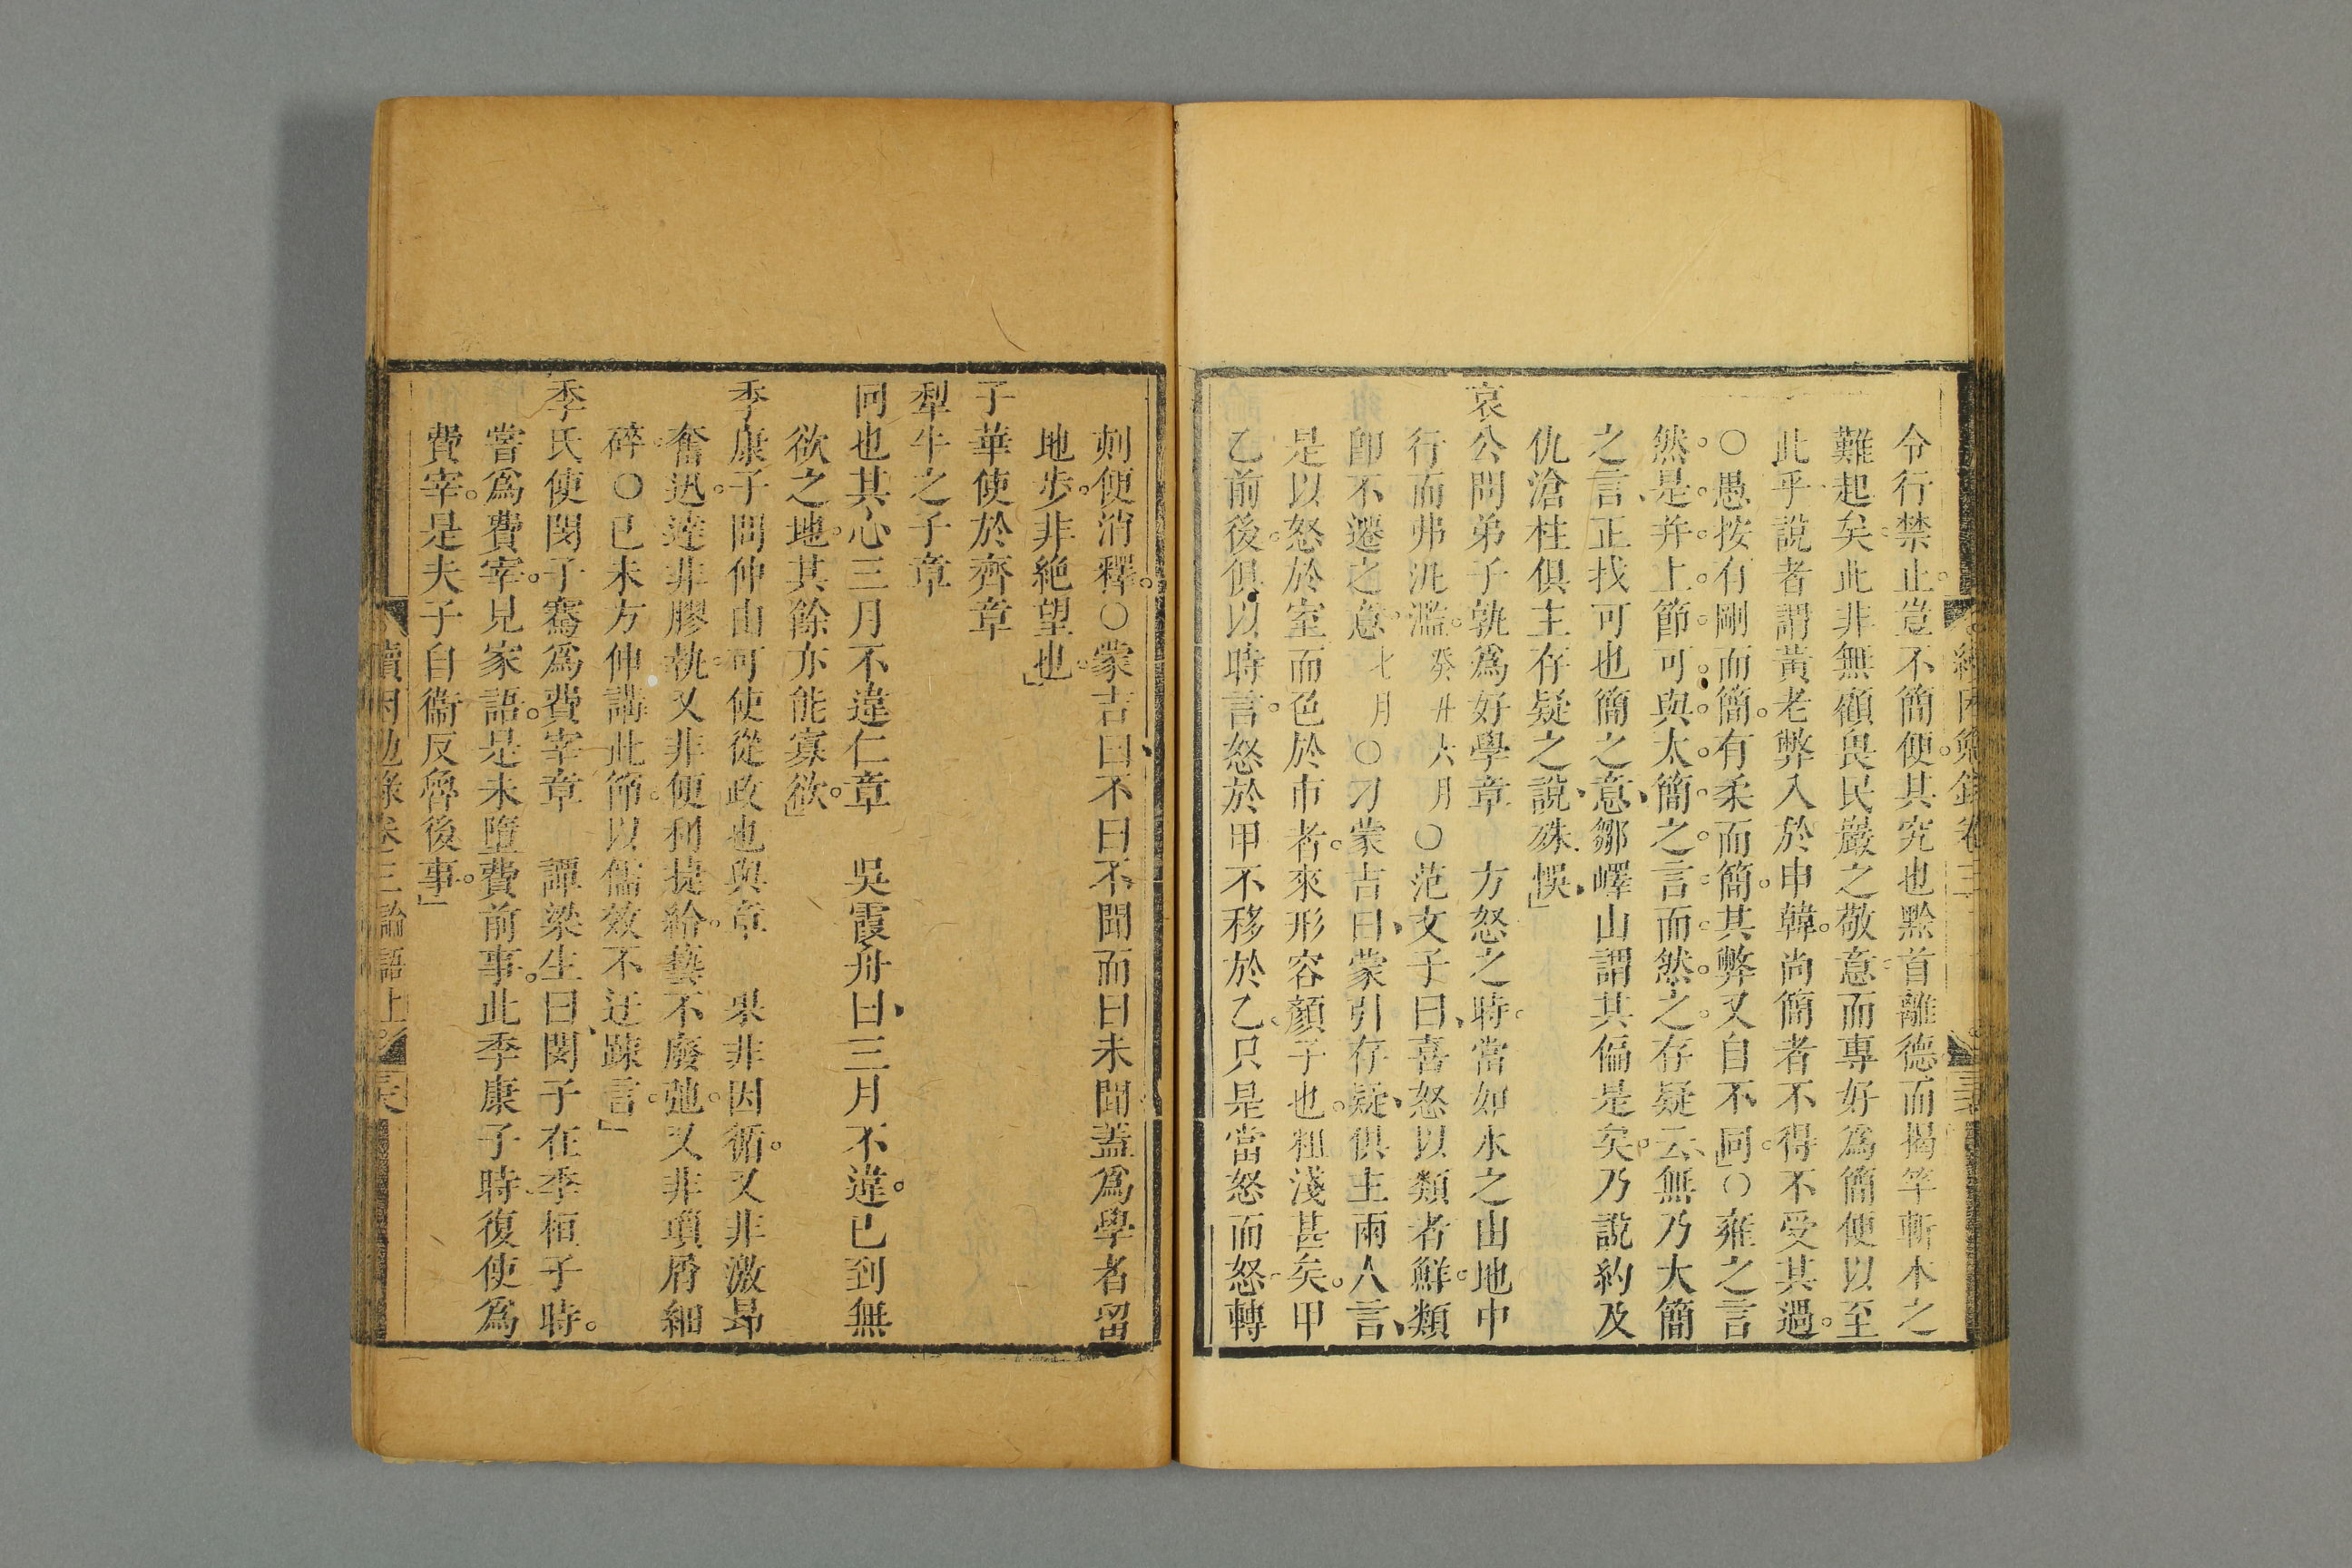 令行禁止。豈不簡便。其究也黔首離德而揭竿斬木之
難起矣。此非無顧畏民嚴之敬意。而專好為簡便以至
此乎說者謂黃老弊入於申韓。尚簡者不得不受其過。
○愚按有剛而簡。有柔而簡。其弊又自不同」○雍之言
然。是并上節可與太簡之言而然之。存疑云、無乃大簡
之言、正找可也簡之意、鄒嶧山謂其偏是矣。乃說約及
仇滄柱俱主存疑之說、殊悞」
哀公問弟子孰為好學章　方怒之時。當如水之山地中
行而弗汎濫。癸丑六月○范文子曰、喜怒以類者鮮。類
卽不遷之意。七月○刁蒙吉曰、蒙引存疑、俱主兩人言、
是以怒於室而色於市者。來形容顏子也。粗淺甚矣。甲
乙前後。俱以時言。怒於甲不移於乙。只是當怒而怒轉
刻便消釋。○蒙吉曰、不曰不聞而曰未聞蓋為學者留
地步。非絕望也。」
子華使於齊章
犁牛之子章
回也其心三月不違仁章　吳霞舟曰、三月不違。已到無
欲之地。其餘亦能寡欲。」
季康子問仲由可使從政也與章　果非因循。又非激昂
奮迅。達非膠執。又非便利捷給。藝不廢弛。又非瑣屑細
碎。○已未方仲講此節。以儒效不迂踈言。」
季氏使閔子騫為費宰章　譚梁生曰、閔子在季桓子時。
嘗為費宰。見家語。是未墮費前事。此季康子時復使為
費宰。是夫子自衞反魯後事。」
讀困勉錄卷三論語上